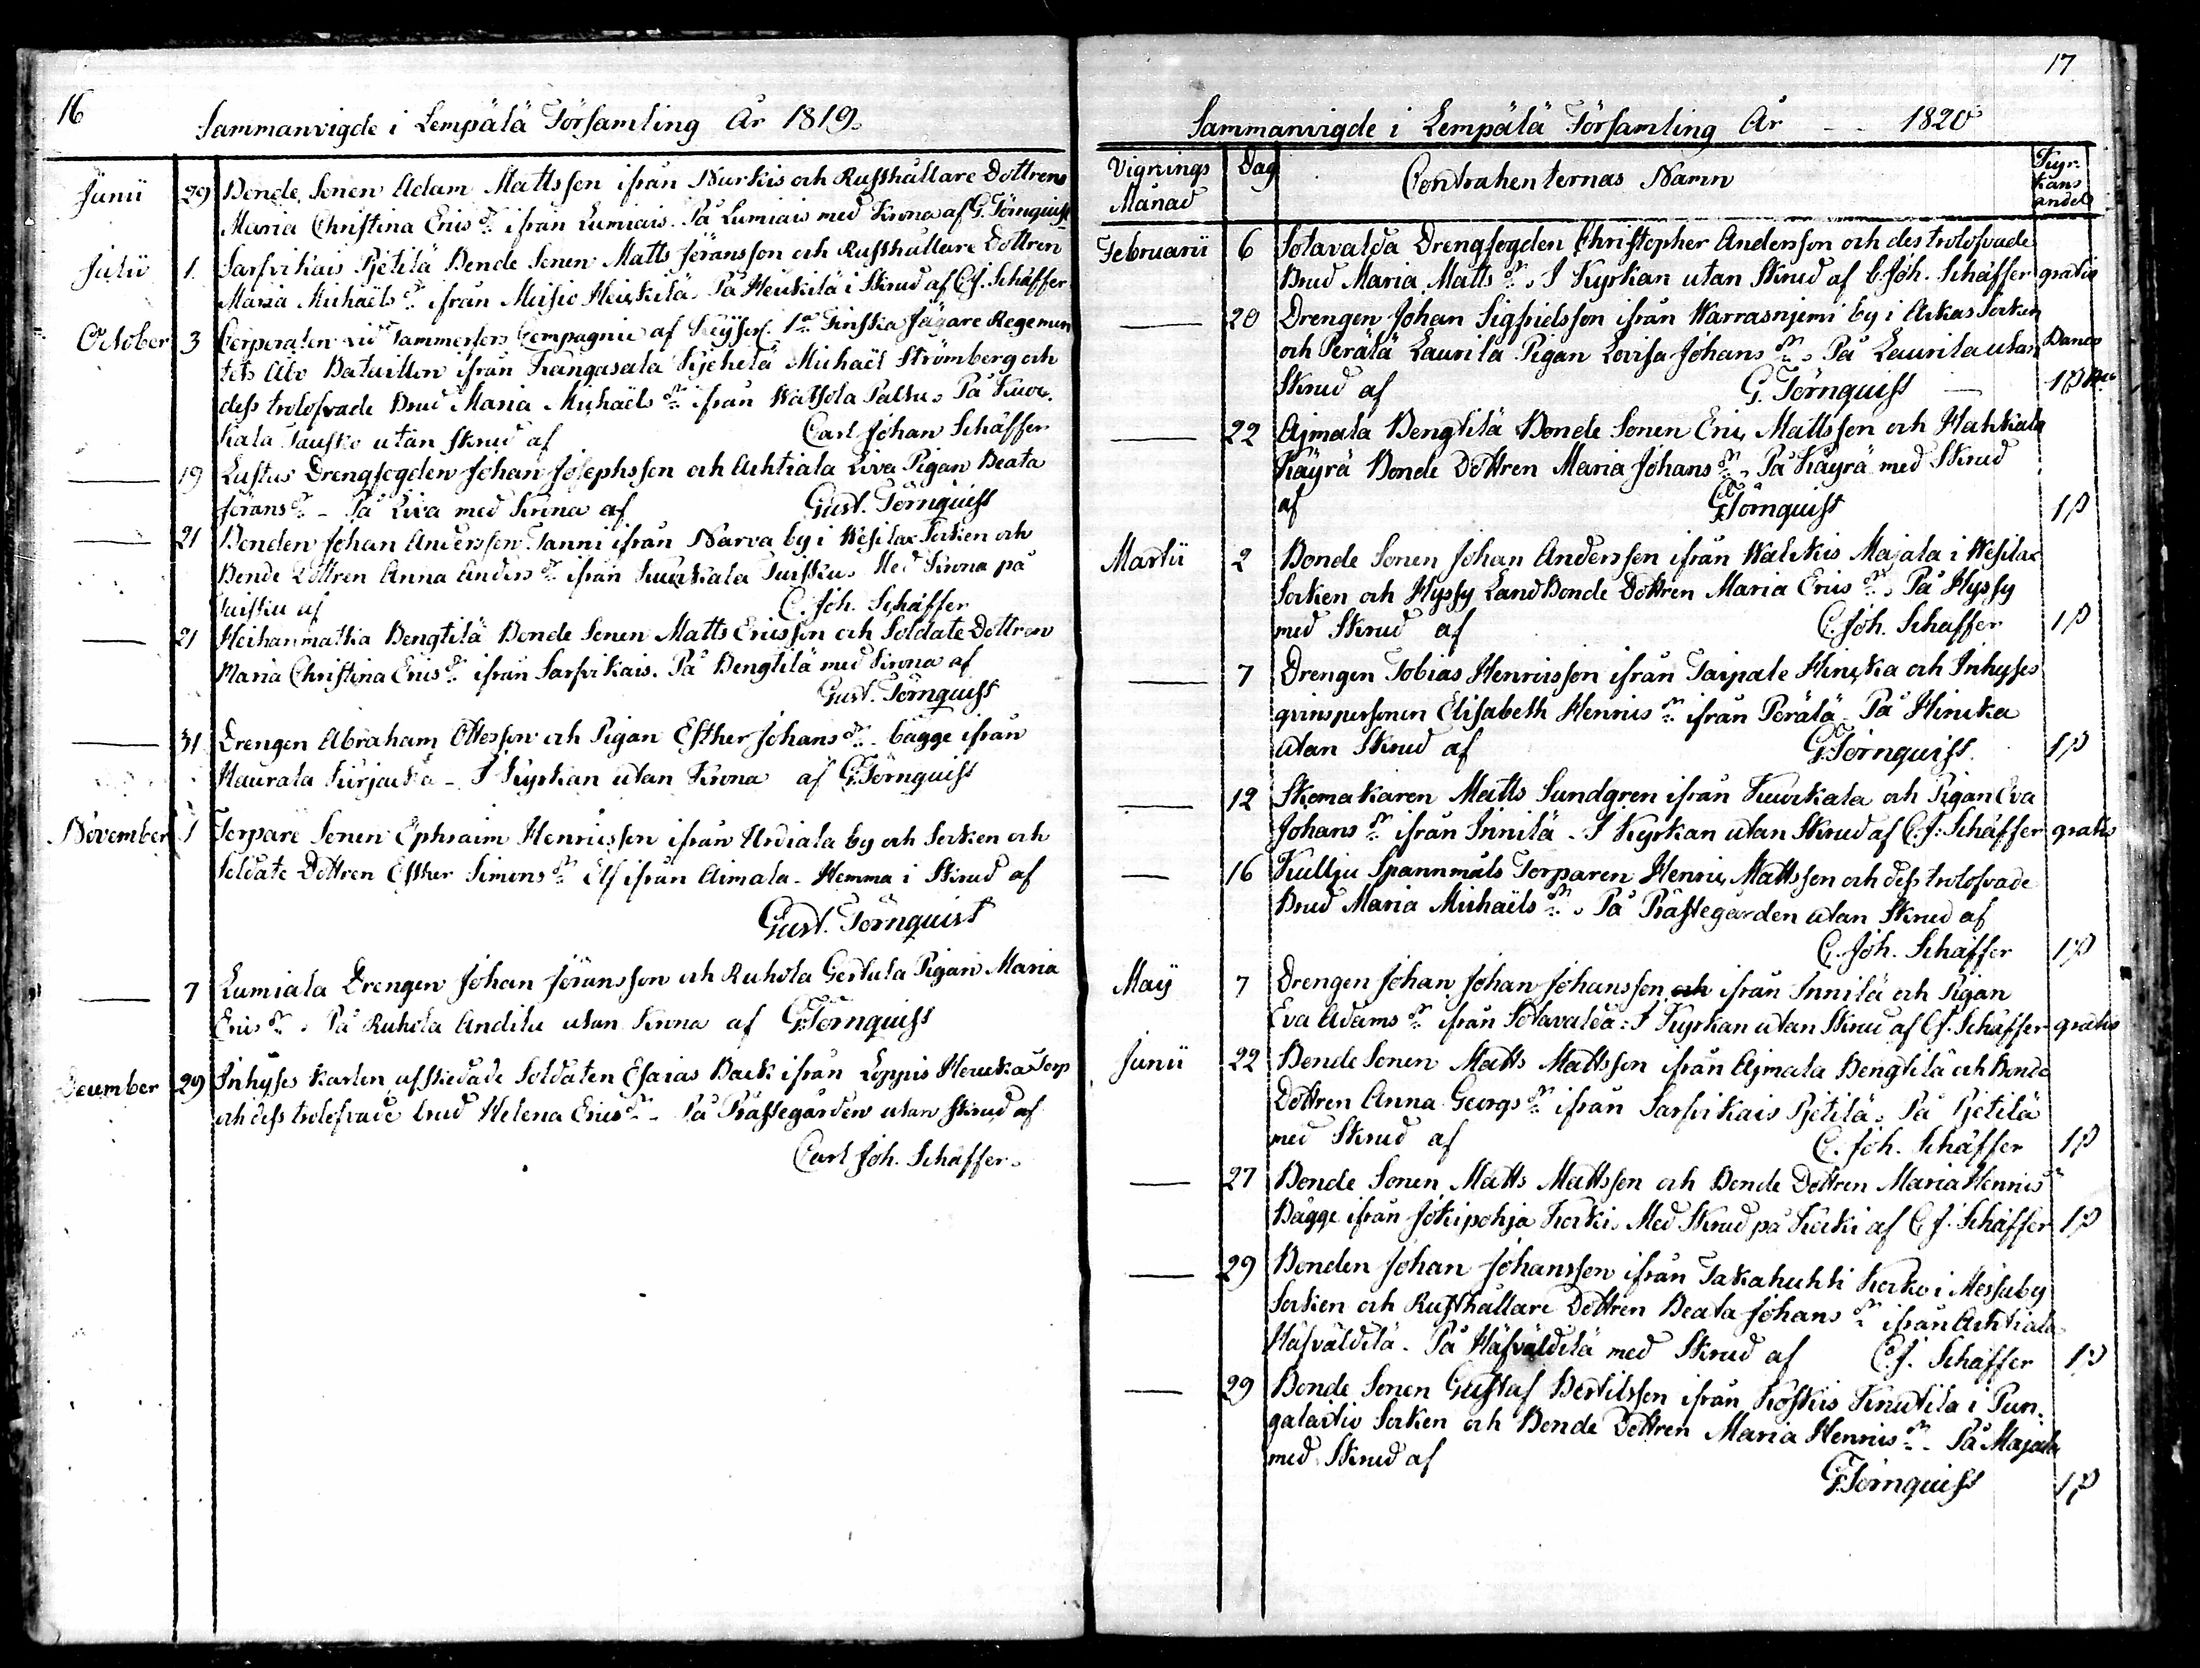 16
Sammanvigde i Lempälä Församling År 1819.
Junii 29 Bonde Sonen Adam Mattsson ifrån Nurkis och Rusthållare Dottren
Maria Christina Erics dr ifrån Lumiais. På Lumiais med Krona af G. Törnquist
Julii 1. Sarfvikais Pjetilä Bonde Sonen Matts Jöransson och Rusthållare Dottren
Maria Michaëls dr ifrån Meisio Heickilä. På Heickilä i Skrud af C.J. Schäffer
October 3 Corporalen vid Tammerfors Compagnie af Keyserl. 1a Finska Jägare Regemen
tets Åbo Bataillon ifrån Kangasala Kjehelä Michaël Strömberg och
dess trolofvade Brud Maria Michaëls dr ifrån Hattsola Palhu. På Kuor.
kala Tausko utan Skrud af Carl Johan Schäffer
— 19 Lustus Drengfogden Johan Josephsson och Achtiala Liva Pigan Beata
Jörans dr - På Liva med Krona af Gust. Törnquist
— 21 Bonden Johan Andersson Tanni ifrån Narva by i Wesilax Socken och
Bonde Dottren Anna Anders dr ifrån Kuorkala Tuisku. Med Krona på
Tuisku af C. Joh. Schäffer
— 21 Heihanmatka Bengtilä Bonde Sonen Matts Ericsson och Soldate Dottren
Maria Christina Erics dr ifrån Sarfvikais. På Bengtilä med Krona af
Gust. Törnquist
— 31 Drengen Abraham Ottosson och Pigan Esther Johans dr - bägge ifrån
Haurala Kirjauka - I Kyrkan utan Krona af G. Törnquist
November 1 Torpare Sonen Ephraim Henricsson ifrån Urdiala by och Socken och
Soldate Dottren Esther Simons dr Elf ifrån Aimala - Hemma i Skrud af
Gust. Törnquist
— 7 Lumiala Drengen Johan Jöransson och Ruhola Gertula Pigan Maria
Erics dr. På Ruhola Andilu utan Krona af G. Törnquist
December 29 Inhyses Karlen afskedade Soldaten Esaias Back ifrån Loppis Heruka Torp
och dess trolofvade brud Helena Erics dr - På Prästegården utan Skrud af
Carl Joh. Schäffer.
17
Sammanvigde i Lempälä Församling År - - 1820
Vignings Månad Dag Contrahenternas Namn Kyr- kans andel
Februarii 6 Sotavalda Drengfogden Christopher Andersson och des trolofvade
Brud Maria Matts dr. I Kyrkan utan Skrud af C. Joh. Schäffer gratis
— 20 Drengen Johan Sigfridsson ifrån Warrasnjemi by i Ackas Socken
och Perälä Laurila Pigan Lovisa Johans dr. På Laurila utan Banco
Skrud af G. Törnquist —
— 22 Ajmala Bengtilä Bonde Sonen Eric Mattsson och Hahkala
Käyrä Bonde Dottren Maria Johans dr. På Käyrä med Skrud
af G. Törnquist 1β
Martii 2 Bonde Sonen Johan Andersson ifrån Walckis Majala i Wesilax
Socken och Hyssy Land Bonde Dottren Maria Erics dr. På Hyssy
med Skrud af C. Joh. Schäffer 1β
— 7 Drengen Tobias Henricsson ifrån Taipale Hincka och Inhyses
qvinspersonen Elisabeth Henrics dr ifrån Perälä - På Hincka
utan Skrud af G. Törnquist 1β
— 12 Skomakaren Matts Sundgren ifrån Kuorkala och Pigan Eva
Johans dr ifrån Innilä - I Kyrkan utan Skrud af C. J. Schäffer gratis
— 16 Kullju Spannmåls Torparen Henric Mattsson och dess trolofvade
Brud Maria Michaëls dr. På Prästegården utan Skrud af
C. Joh. Schäffer 1β
Maij 7 Drengen Johan Johan Johansson och ifrån Innilä och Pigan
Eva Adams dr ifrån Sotavalda: I Kyrkan utan Skrud af C. J. Schäffer gratis
Junii 22 Bonde Sonen Matts Mattsson ifrån Ajmala Bengtilä och Bonde
Dottren Anna Georgs dr ifrån Sarfvikais Pjetilä. På Pjetilä
med Skrud af C. Joh. Schäffer 1β
— 27 Bonde Sonen Matts Mattsson och Bonde Dottren Maria Henrics dr
Bägge ifrån Jokipohja Kocki. Med Skrud på Kocki af C. J. Schäffer 1β
— 29 Bonden Johan Johansson ifrån Takahuhti Kocko i Messuby
Socken och Rusthållare Dottren Beata Johans dr ifrån Achtiala
Häfväldilä - På Häfväldilä med Skrud af C. J. Schäffer 1β
— 29 Bonde Sonen Gustaf Bertilsson ifrån Koskis Knutila i Pun-
galaitio Socken och Bonde Dottren Maria Henrics dr - På Majala
med Skrud af
G. Törnquist 1β